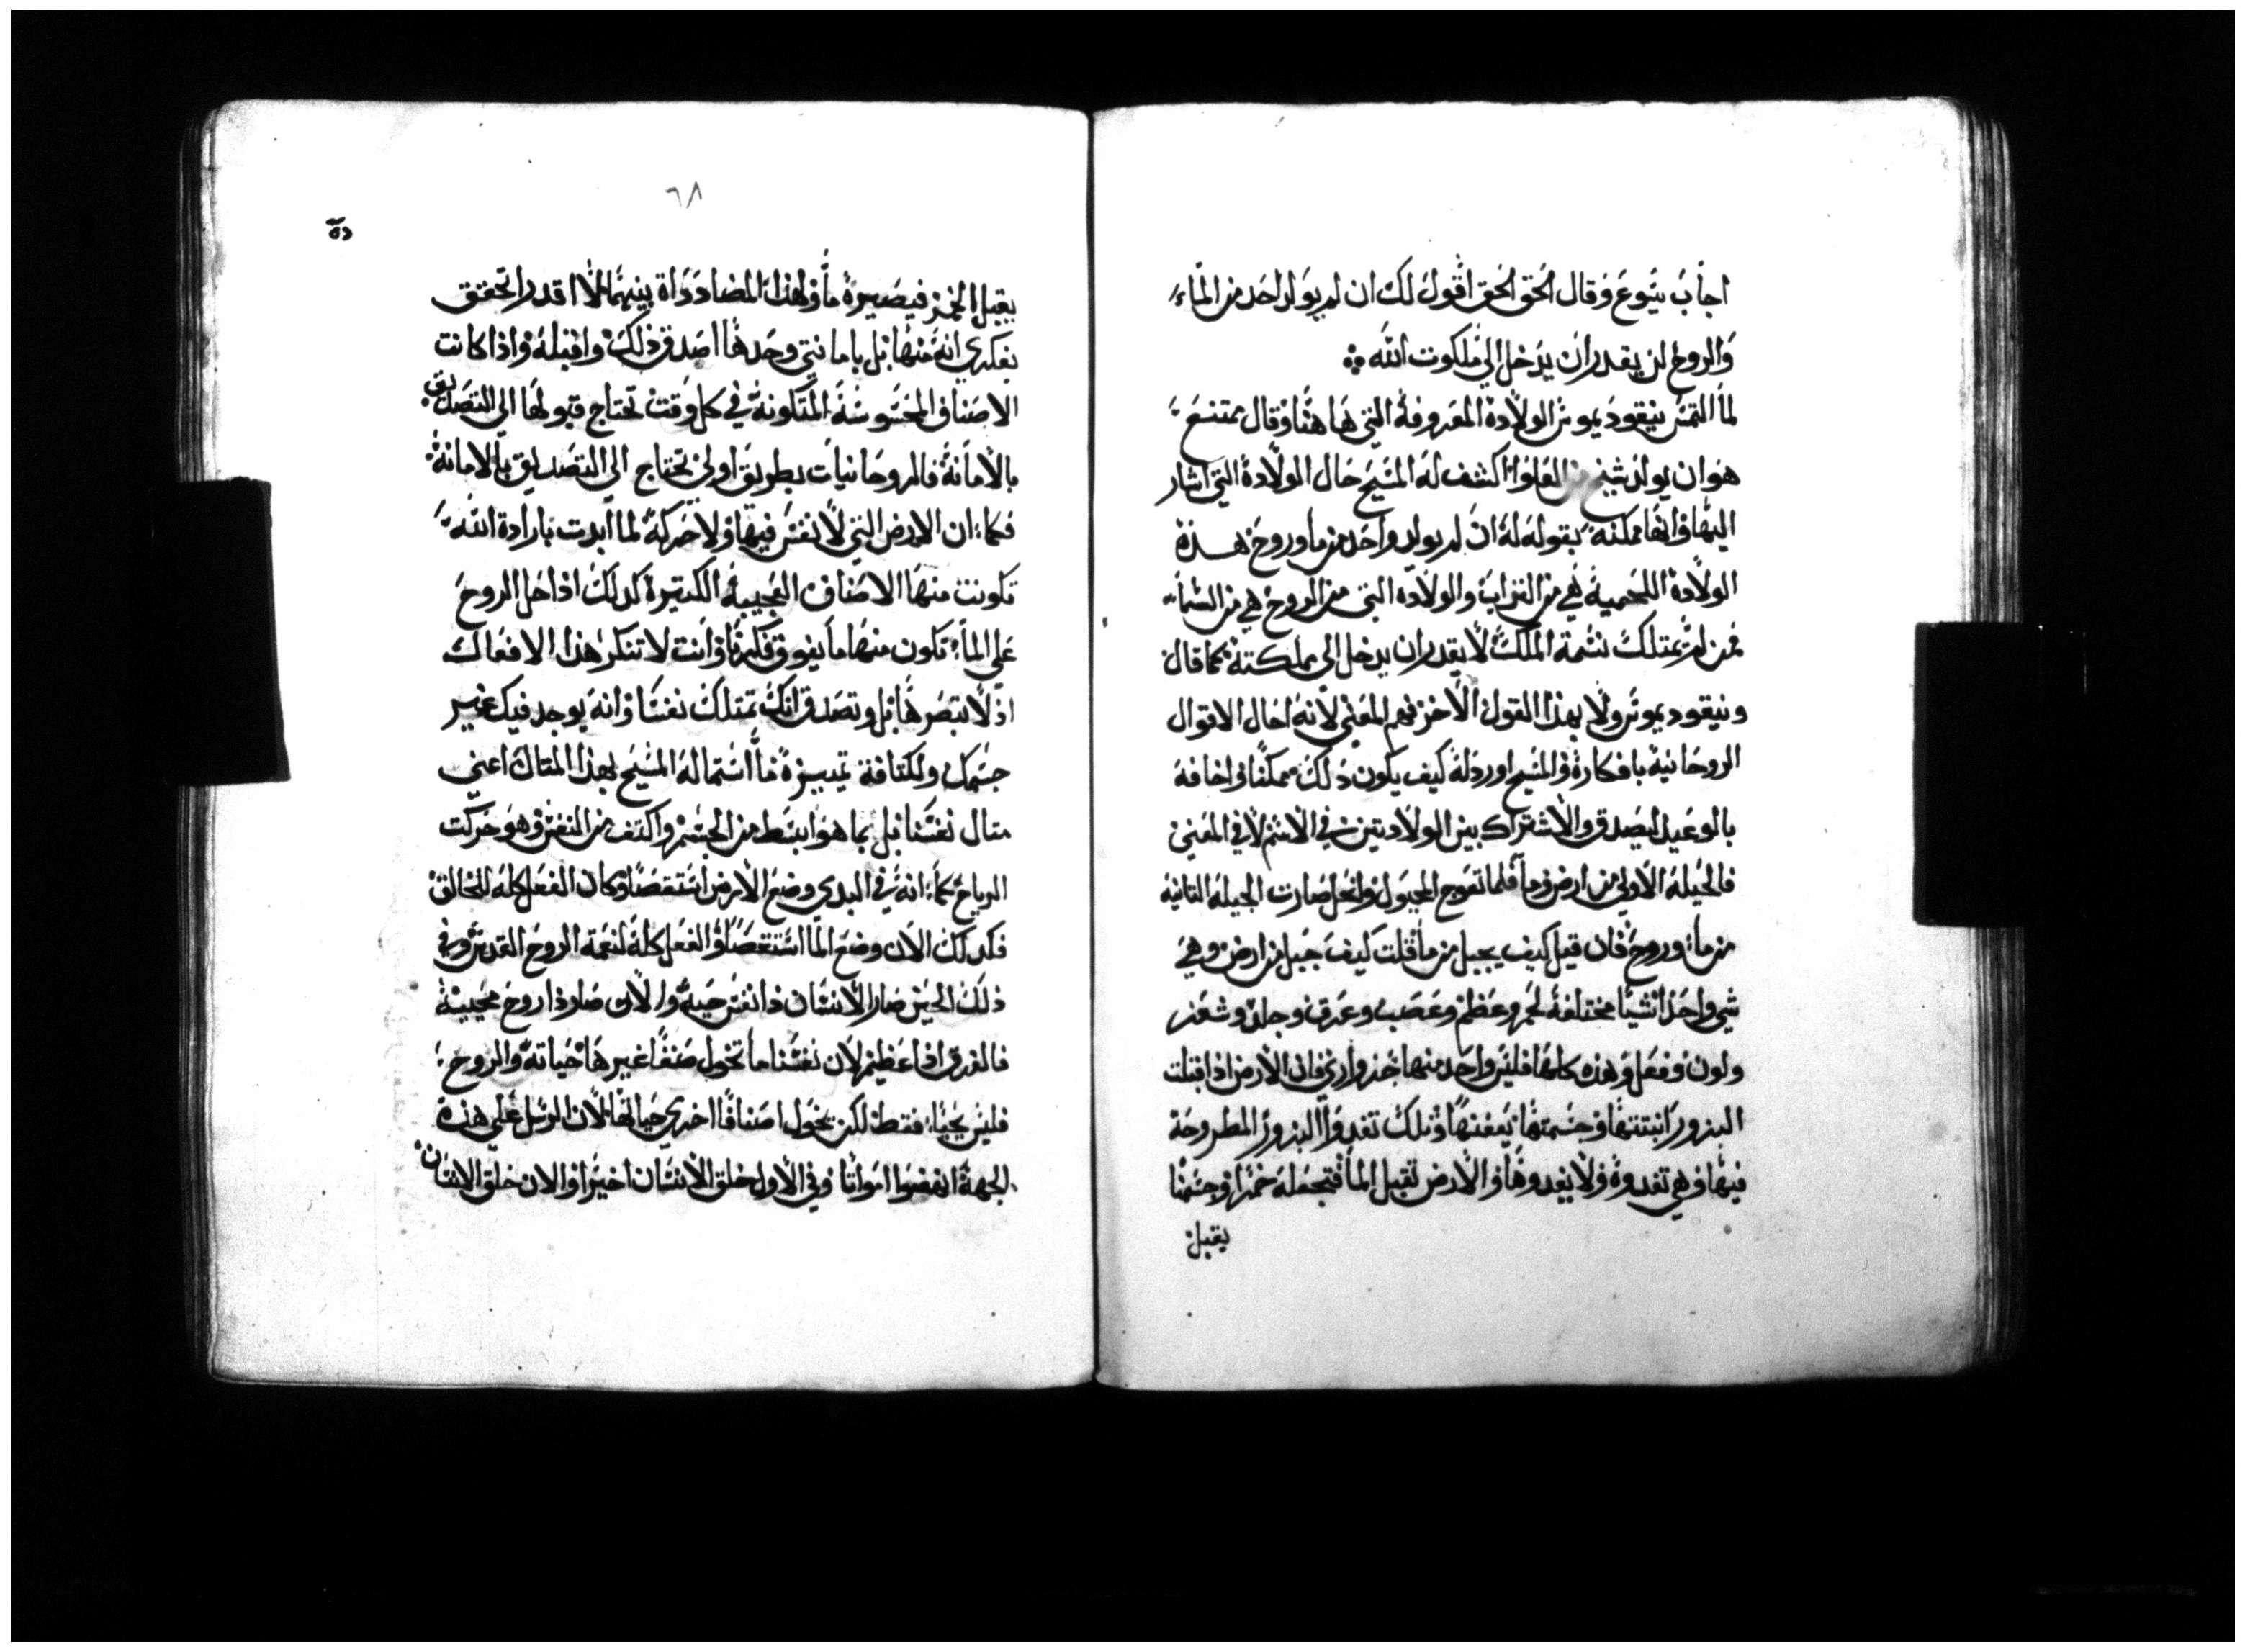 اجاب يسوع وقال الحق الحق اقول لك ان لم يولد احد من الماء
والروح لن يقدر ان يدخل الي ملكوت الله
لما التمس نيقوديموس الولادة المعروفة التي ها هنا وقال ممتنع
هو ان يولد شيخ من العلو اكشف له المسيح حال الولادة التي اشار
اليها وانها ممكنه بقوله له ان لم يولد واحد من ما وروح هذه
الولادة اللحمية هي من التراب والولاده التي من الروح هي من السماء
فمن لم يمتلك نسمة الملك لا يقدر ان يدخل الي مملكته كما قال
ونيقوديموس ولا بهذا القول الاخر فهم المعني لانه احال الاقوال
الروحانية بافكاره والمسيح اورد له كيف يكون ذلك ممكنا واخافه
بالوعيد ليصدق والاشتراك بين الولادتين في الاسم لا في المعني
فالجبلة الاولي من ارض وما فلما تعوج المجبول وانحل صارت الجبلة الثانية
من ماء وروح فان قيل كيف يجبل من ما قلت كيف جبل من ارض وهي
شي واحد اشيا مختلفة لحم وعظم وعصب وعرق وجلد وشعر
ولون وفعل وهذه كلها فليس واحد منها جزو ارضي فان الارض اذا قبلت
البزور انبتتها وجسمتها بعفنها وتلك تغدوا البزور المطروحة
فيها وهي تغدوه ولا يغدوها والارض تقبل الما فتجعله خمرا وجسمنا
يقبل
٦٨
يقبل الخمر فيصيره ما وهذا المضاددداة بينهما لاا اقدر اتحقق
بفكري انه منها بل بامانتي وحدها اصدق ذلك واقبله واذا كانت
الاصناف المحسوسة المتكونة في كل وقت تحتاج قبولها الي التصديق
بالامانة فالروحانيات بطريق اولي تحتاج الي التصديق بالامانة
فكما ان الارض التي لا نفس فيها ولا حركة لما ابدت بارادة الله
تكونت منها الاصناف العجيبة الكثيرة كدلك اذا حل الروح
علي الماء تكون منها ما يفوق فكرنا وانت لا تنكر هذا الافعال
اذ لا تبصرها بل وتصدق انك تمتلك نفسا وانه يوجد فيك غير
جسمك ولكثافة تمييزه ما استماله المسيح بهذا المتال اعني
متال نفسنا بل بما هو ابسط من الجسم واكثف من النفس وهو حركت
الرياح كما انه في البدي وضع الارض استقصا وكان الفعل كله للخالق
فكدلك الان وضع الما استقصا والفعل كله لنعمة الروح القدس وفي
ذلك الحين صار الانسان ذا نفس حية والان صار ذا روح محييه
فالفرق اذا عظيم لان نفسنا ما تخول صنفا غيرها حياته والروح
فليس يحيا فقط لكن يخول اصنافا اخري حياتها لان الرسل علي هذه
الجهة انهضوا امواتا وفي الاول خلق الانسان اخيرا والان خلق الانسان